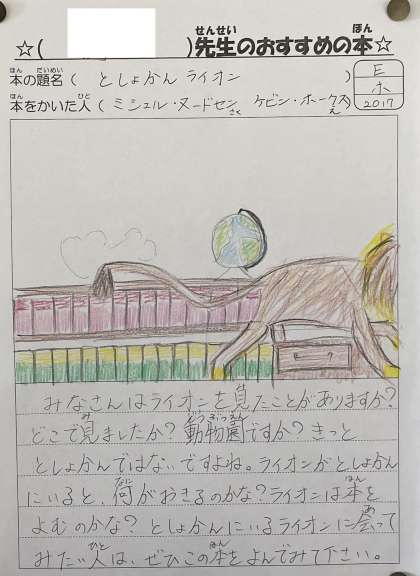 ☆(　　　)先生のおすすめの本☆
本の題名(としょかんライオン)
本をかいた人(ミシェル・ヌードセン さく ケビン・ホークス え)
E
ホ
2017
みなさんはライオンを見たことがありますか?
どこで見ましたか?動物園ですか?きっと
としょかんではないですよね。ライオンがとしょかん
にいると、何がおきるのかな?ライオンは本を
よむのかな?としょかんにいるライオンに会って
みたい人は、ぜひこの本をよんでみて下さい。